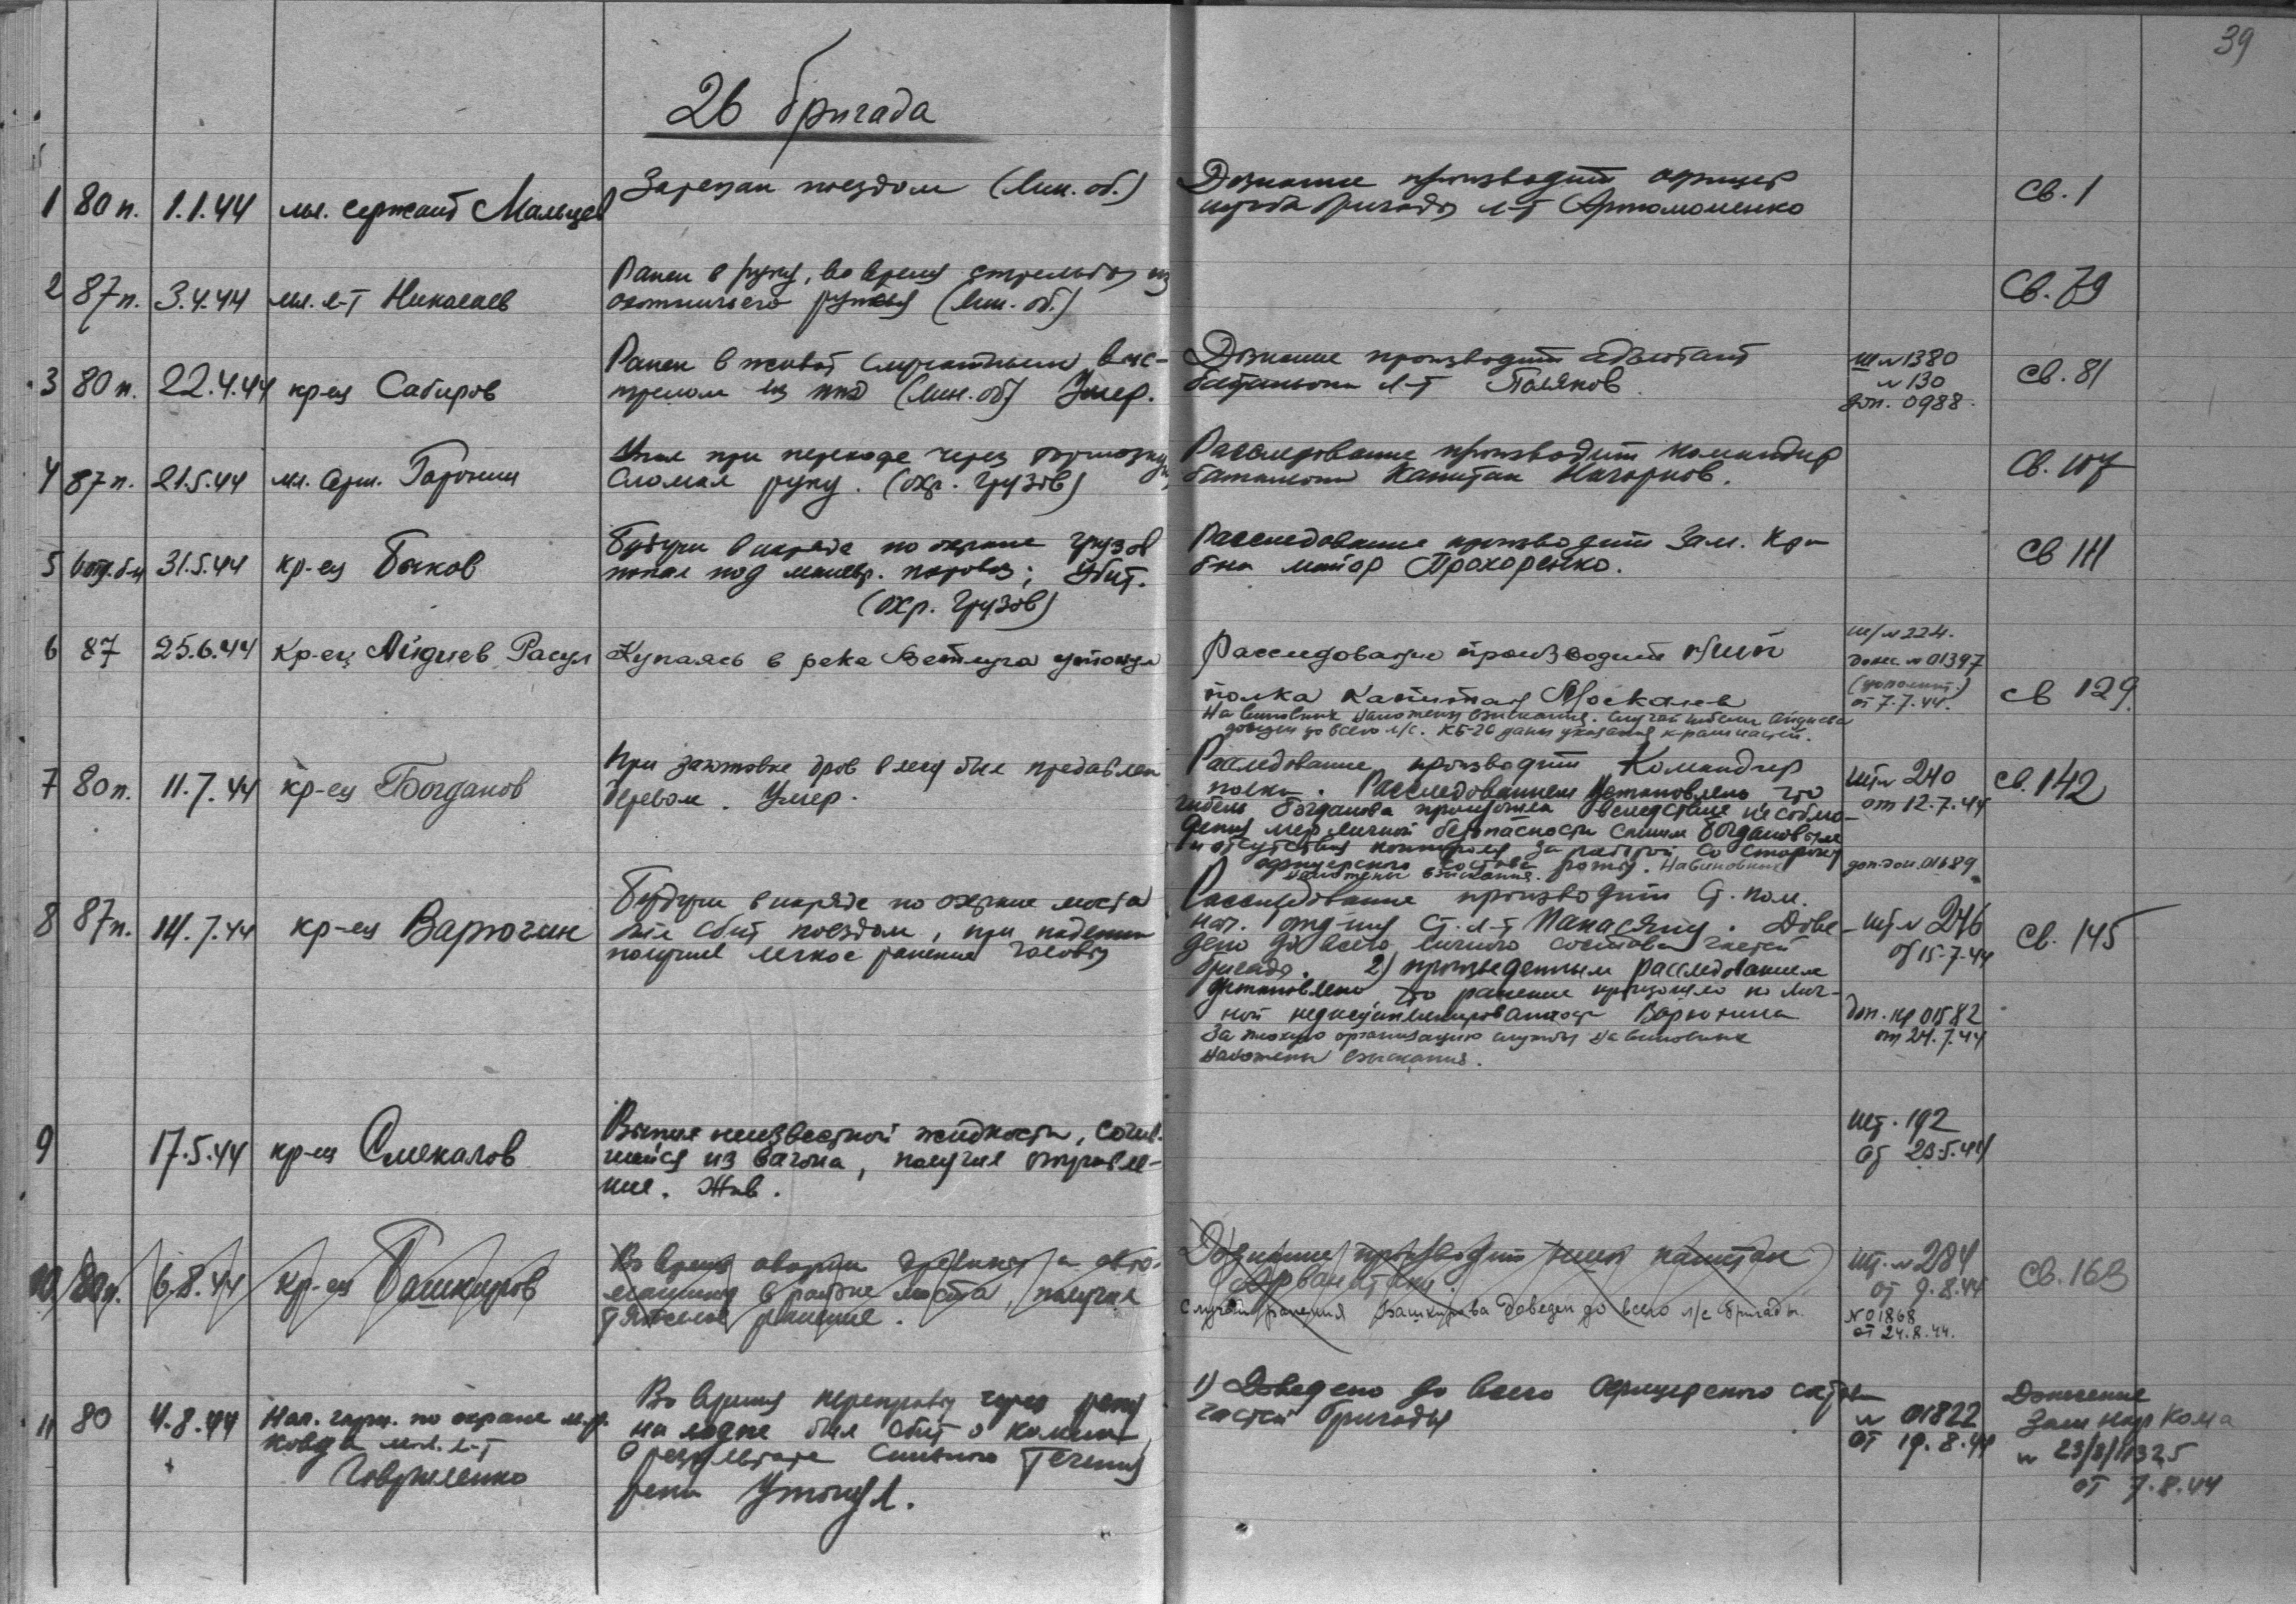 39
26 бригада
1 80 п. 1.1.44 мл. сержант Мальцев
Зарезан поездом (Лин. об.)
Дознание производит офицер
штаба бригады л-т Артомоменко
Св. 1
2 87 п. 3.4.44 мл. л-т Николаев
Ранен в руку, во время стрельбы из
охотничьего ружья (Лин. об.)
Св. 79
3 80 п. 22.4.44 кр-ец Сабиров
Ранен в живот случайным выс-
трелом из ППД (Лин. об) Умер.
Дознание производит адъютант
батальона л-т Поляков.
шт № 1380
№ 130
доп. 0988.
Св. 81
4 87 п. 21.5.44 мл. серж.
Упал при переходе через
Сломал руку. (охр. грузов)
Расследование производит командир
батальона Капитан Нагорнов.
Св. 107
5 31.5.44 кр-ец Быков
Будучи в наряде по охране грузов
попал под маневр. паровоз; Убит.
(охр. грузов)
Расследование производит Зам. К-ра
б-на майор Прохоренко.
Св 111
6 87 25.6.44 Кр-ец Айдиев Расул
Купаясь в реке Ветлуга утонул
Расследование производит НШ
полка Капитан Москалев
На виновных наложены взыскания. Случай гибели Айдиева
доведен до всего л/с. КБ-26 даны указания
шт № 224.
донес. № 01397
(дополнит.)
от 7.7.44.
св 129
7 80 п. 11.7.44 кр-ец Богданов
При заготовке дров в лесу был придавлен
деревом. Умер.
Расследование производит Командир
полка. Расследованием установлено что
гибель Богданова произошла вследствие не соблю-
дения мер личной безопасности самим Богдановым
и отсутствия контроля за работой со стороны
офицерского состава роты. На виновных
наложены взыскания.
шт № 240
от 12.7.44
доп. дон. 01689
св. 142
8 87 п. 14.7.44 кр-ец Варюгин
Будучи в наряде по охране моста
был сбит поездом, при падении
получил легкое ранение головы
Расследование производит Ст. пом.
нач. отд-ния ст. л-т Панасянц. Дове-
дено до всего личного состава частей
бригады. 2) произведенным расследованием
установлено, что ранение произошло по лич-
ной недисциплинированности Варюгина
За плохую организацию службы на виновных
наложены взыскания.
шт № 246
от 15-7-44
доп. № 01582
от 24.7.44
Св. 145
9 17.5.44 кр-ец Смекалов
Выпил неизвестной жидкости, сочив-
шейся из вагона, получил отравле-
ние. Жив.
шт. 192
от 23.5.44
10 80 п. 6.8.44 кр-ец Башкиров
Во время аварии дрезины и авто-
машины в районе моста, получил
тяжелое ранение.
Дознание производит НШ капитан
Случай ранения Башкирова доведен до всего л/с бригады.
шт. № 284
от 9.8.44
№ 01868
от 24.8.44.
Св. 163
11 80 4.8.44 Нач. гарн. по охране
мл. л-т
Говриленко
Во время переправы через реку
на лодке был сбит о камень,
в результате сильного течения
реки Утонул.
1) Доведено до всего офицерского состава
частей бригады
№ 01822
от 19.8.44
Донесение
Зам нар Кома
№ 23/8/11325
от 7.8.44